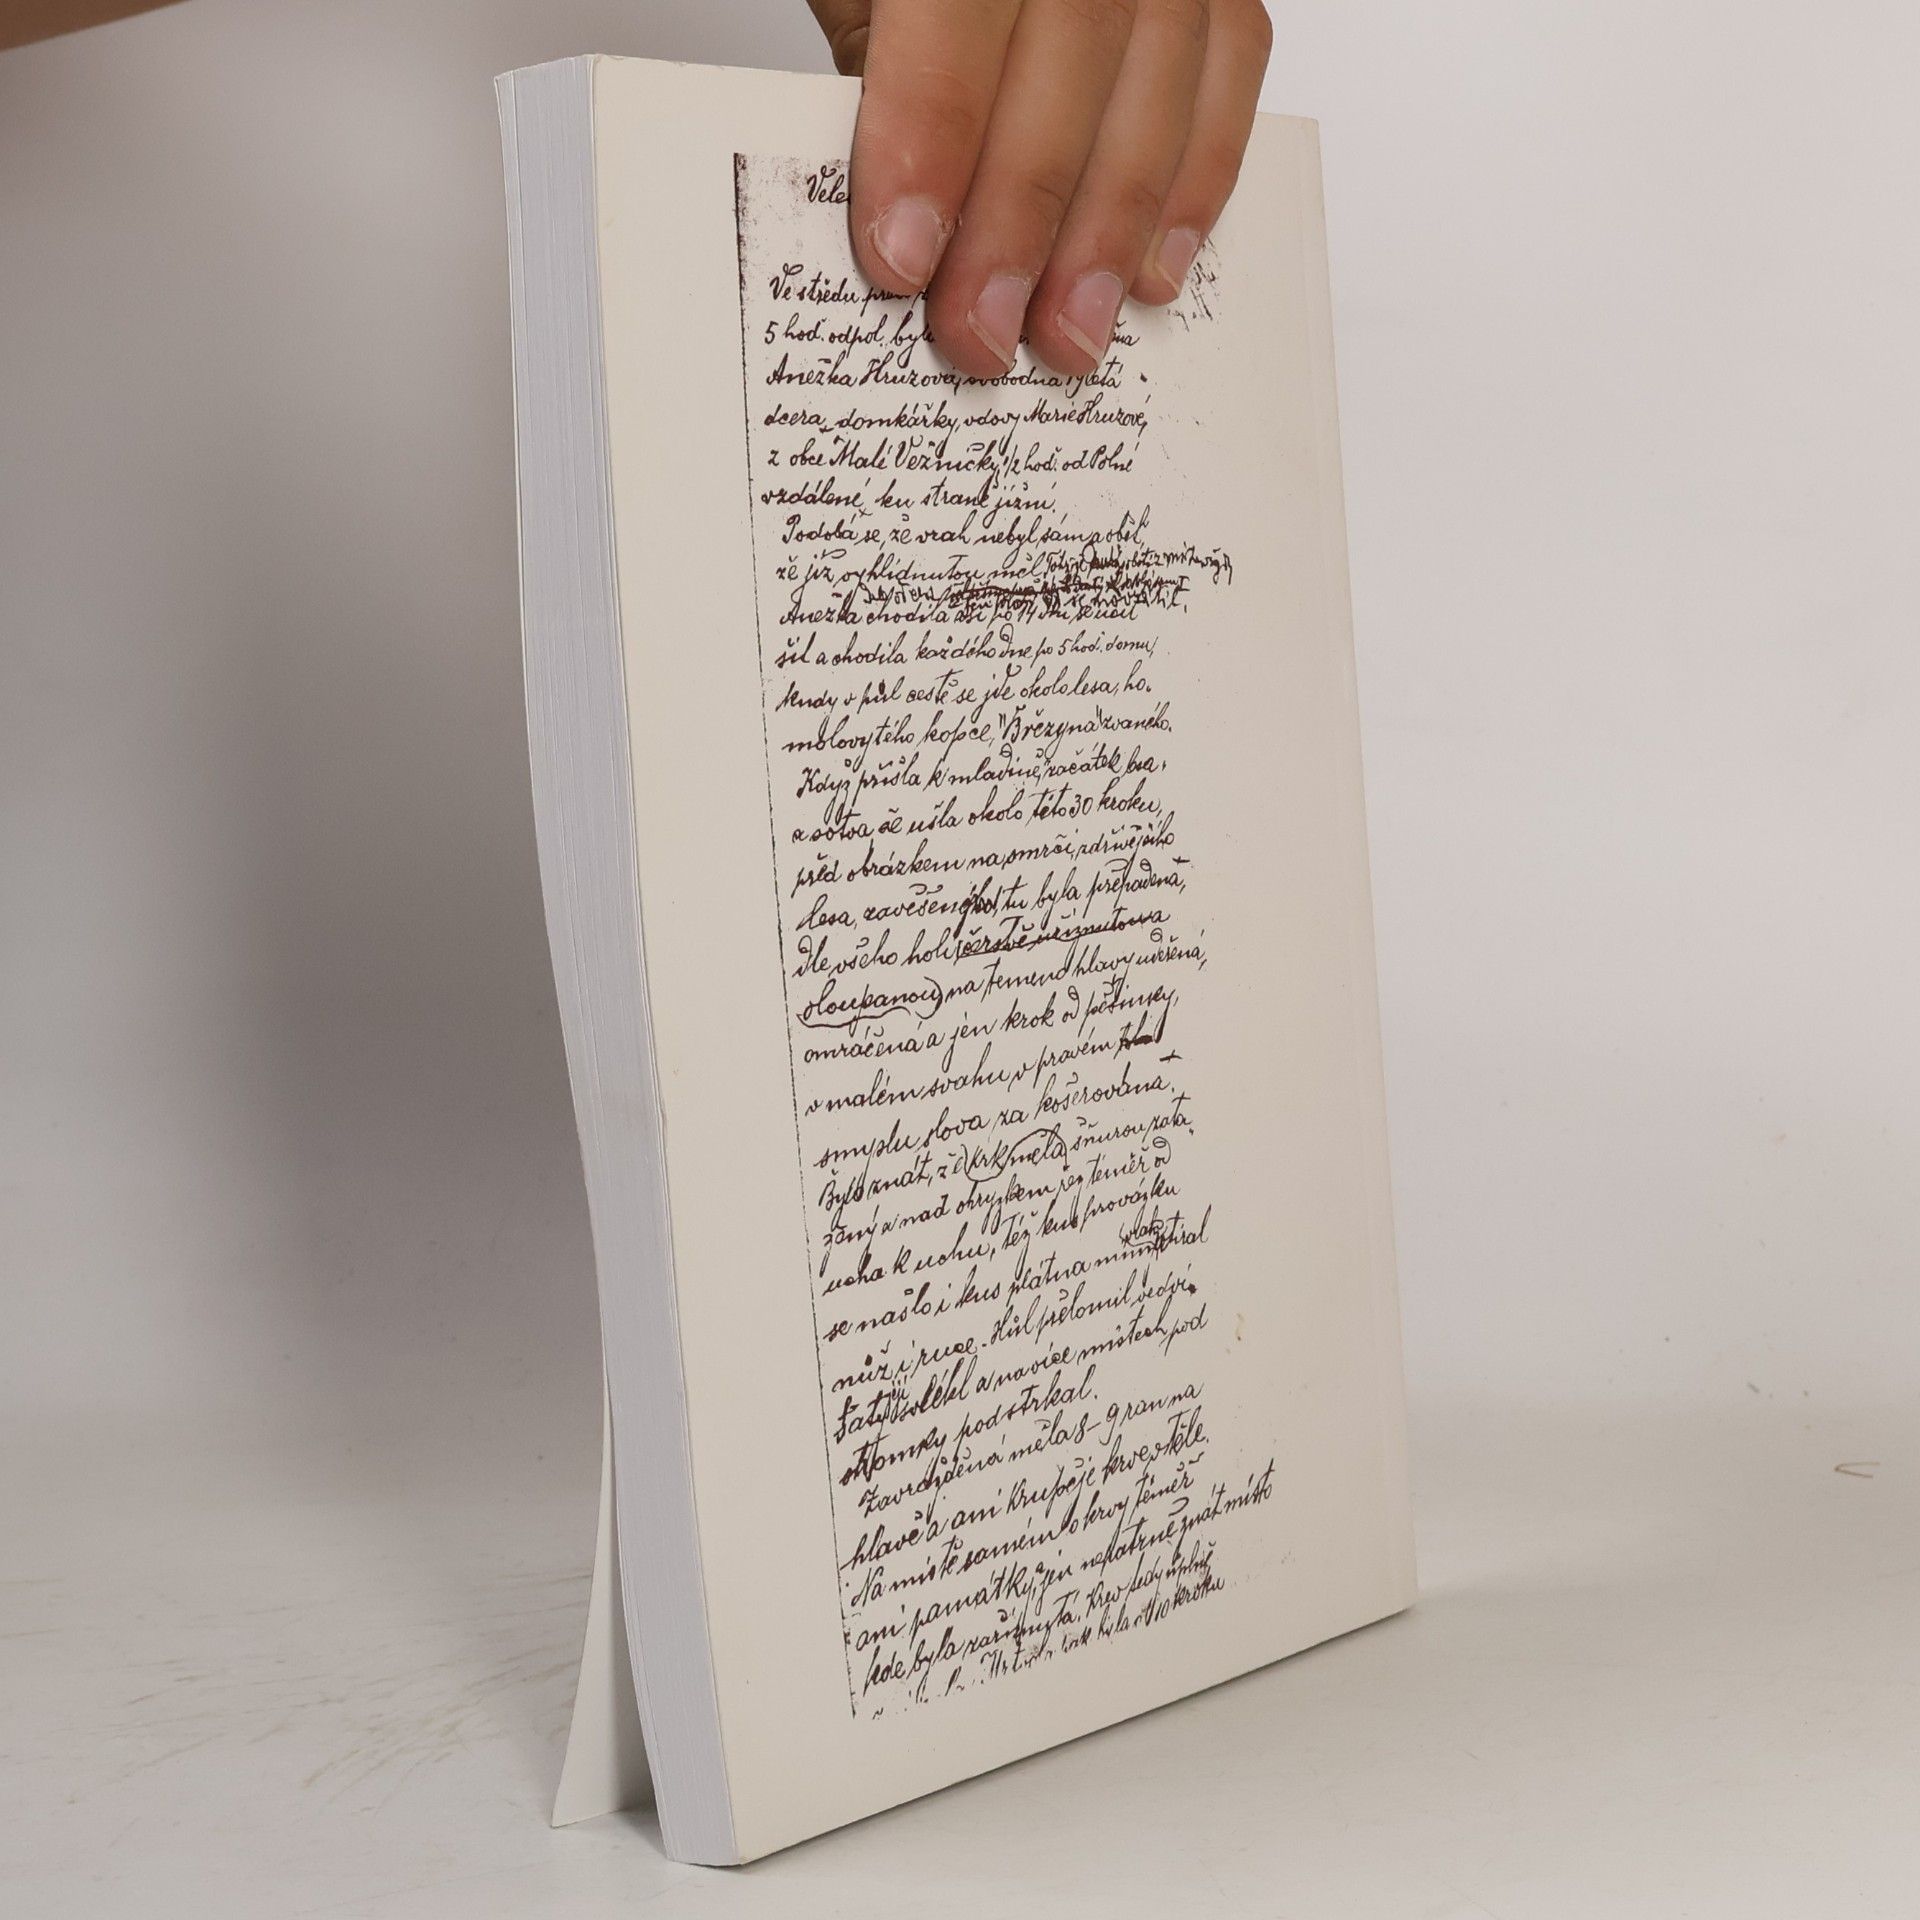 Ve středu
5 hod. odpol. byla
Anežka Hruzová, svobodna 19letá
dcera domkářky, vdovy Marie Hruzové,
z obce Malé Věžničky, 1/2 hod. od Polné
vzdálené, ku straně jižní.
Podobá se, že vrah nebyl sám a oběť,
že již vyhlídnutou měl
Anežka chodila asi po 14 dní se učit
šít a chodila každého dne po 5 hod. domu,
kudy v půl cestě se jde okolo lesa, ho-
molovytého kopce, "Březyna" zvaného.
Když přišla k mladině, začátek lesa,
a sotva se ušla okolo této 30 kroku,
před obrázkem na smrči, zdřívějšího
lesa, zavěšeného, tu byla přepadena,
dle všeho holí čerstvě uříznutou a
oloupanou na temeno hlavy udeřená,
omráčená a jen krok od pěšinky,
v malém svahu v pravém
smyslu slova za košerována.
Bylo znát, že krk měla šňurou zata-
žený a nad ohryzkem řez téměř od
ucha k uchu, též kus provázku
se našlo i kus plátna mímž vrah otíral
nůž i ruce. Hůl přelomil vedví,
šaty její svlékl a na více místech pod
stromky podstrkal.
Zavražděná měla 8-9 ran na
hlavě a ani krupěje krve v těle.
Na místě samém o krvy téměř
ani památky, jen nepatrně znát místo
kde byla zaříznutá. Krev tedy úplně
byla 10 kroku